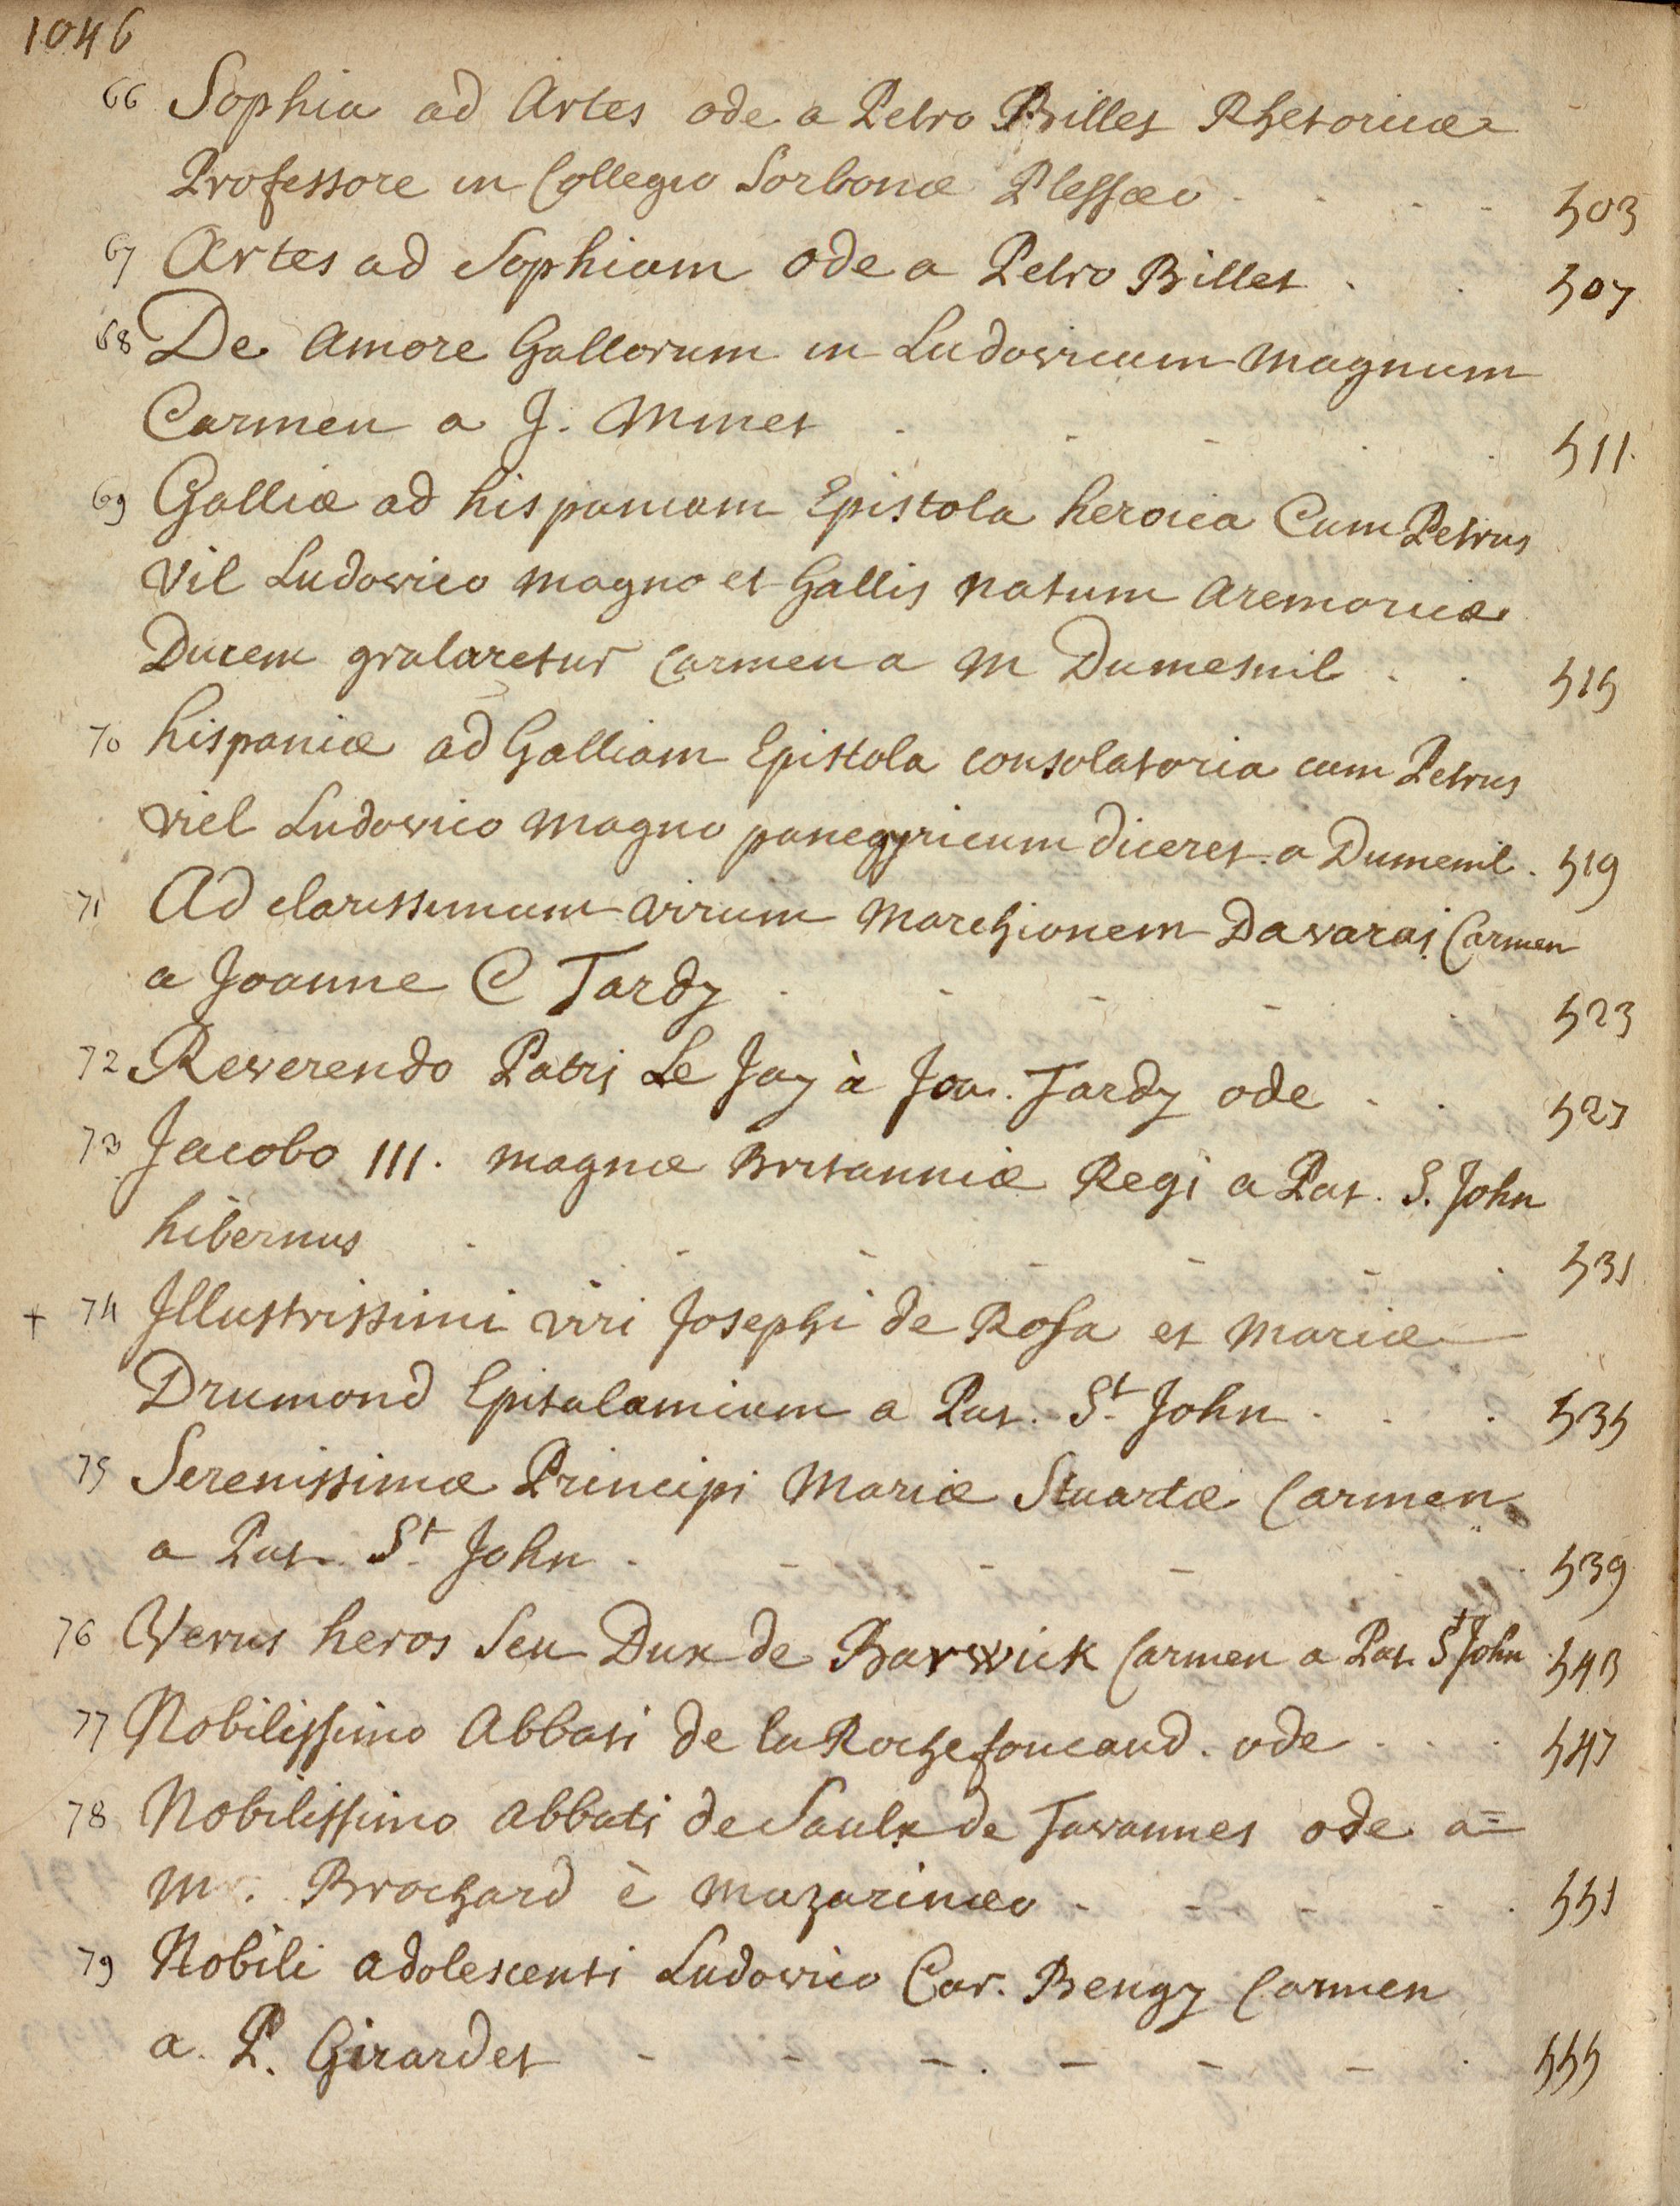 1046
66 Sophia ad Artes ode a Petro Billet Rhetoricæ
Professore in Collegio Sorbonæ Plessæo . . . . 503
67 Artes ad Sophiam ode a Petro Billet . . 507
68 De Amore Gallorum in Ludovicum magnum
Carmen a J. Minet . . . . . 511.
69 Galliæ ad hispaniam Epistola heroica Cum Petrus
Vil Ludovico magno et Gallis natum Aremoricæ
Ducem grataretur Carmen a M Dumesnil . . 515
70 hispaniæ ad Galliam Epistola consolatoria cum Petrus
viel Ludovico magno panegyricum diceret. a Dumenil . 519
71 Ad clarissimum virum Marchionem Davarai Carmen
a Joanne C Tardy . . . . . 523
72 Reverendo Patri Le Jay à Joan. Tardy ode . . 527
73 Jacobo III. magnæ Britanniæ Regi a Pat. S. John
hibernus . . . . . . . 531
+ 74 Illustrissimi viri Josephi de Rosa et Mariæ
Drumond Epitalamium a Pat. St. John . . . 535
75 Serenissimæ Principi Mariæ Stuartæ Carmen
a Pat. St. John . . . . . 539
76 Verus heros Seu Dux de Barwick Carmen a Pat. St John . 543
77 Nobilissimo Abbati de la Rochefoucaud. ode . . . 547
78 Nobilissimo abbati de Saulx de Tavannes ode a=
M . Brochard è Mazarinæo . . . . . 551
79 Nobili adolescenti Ludovico Car. Bengy Carmen
a. P. Girardet - - - . - - - . 555